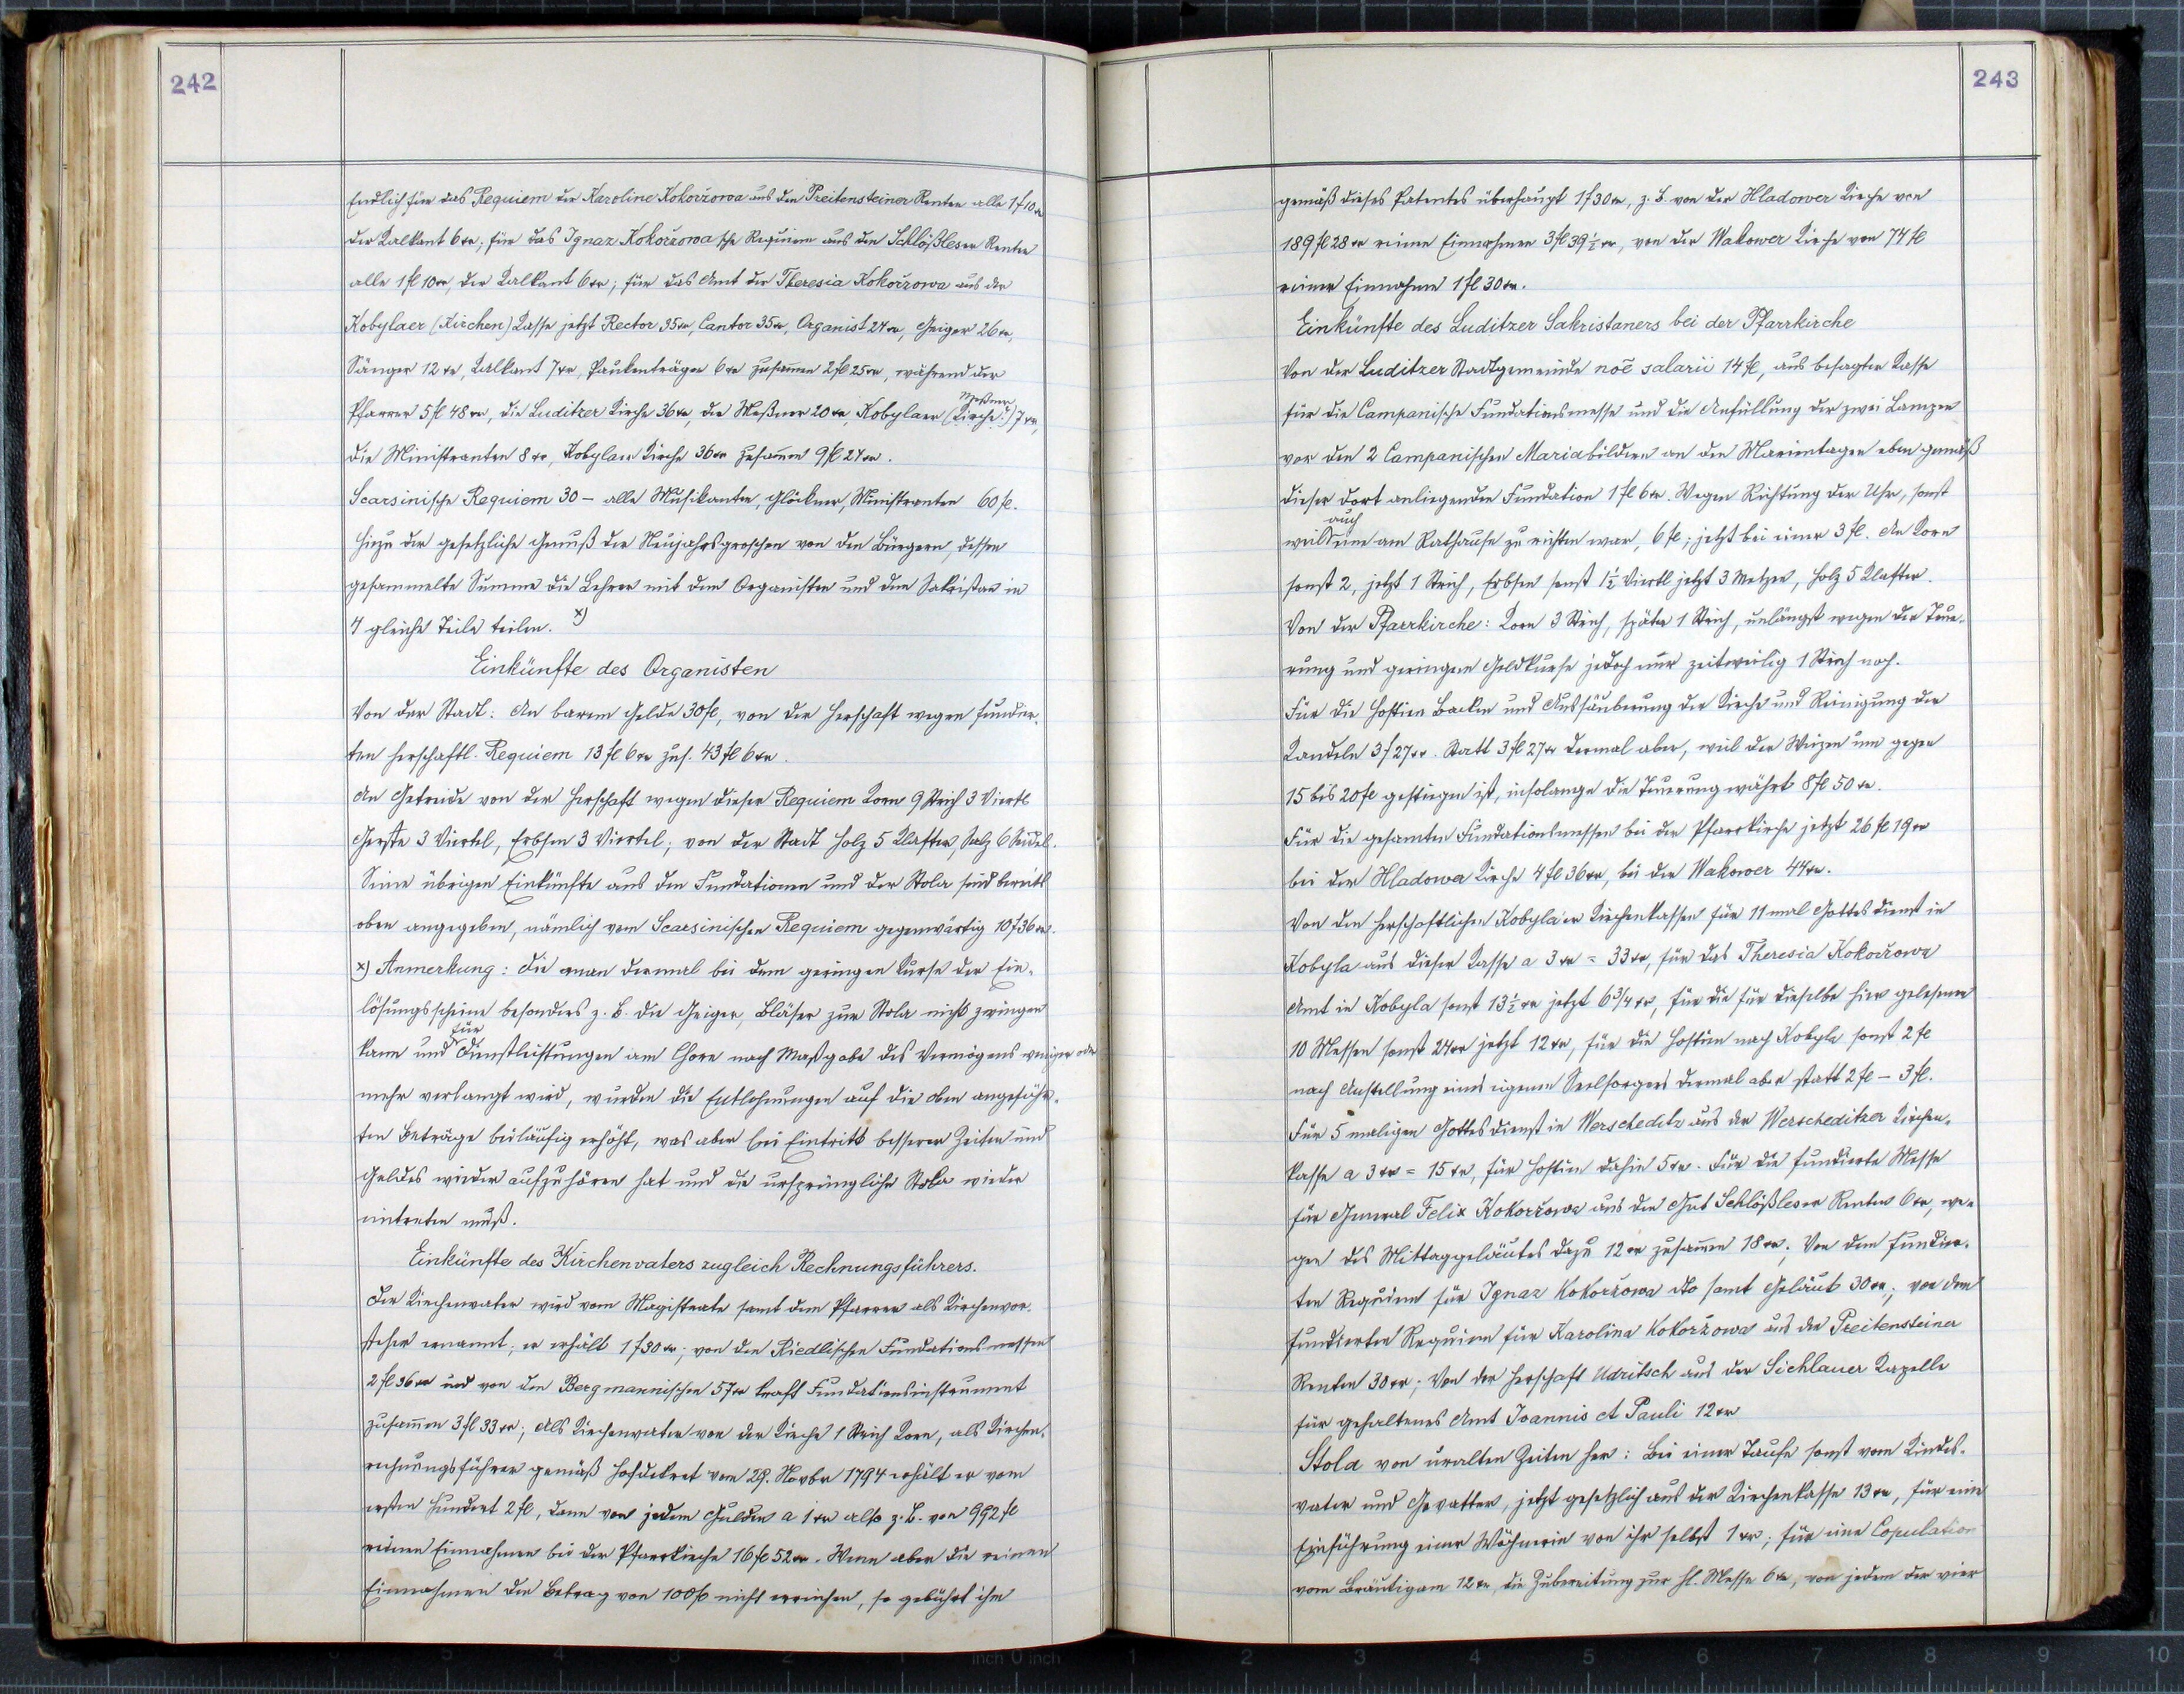 242
Endlich für das Requiem der Karoline Kokoržowa aus den Preitensteiner Renten alle 1 f 10 xr
der Kalkant 6 xr; für das Ignaz Kokoržowa'sche Requiem aus den Schlößleser Renten
alle 1 fl 10 xr, der Kalkant 6 xr; für das Amt der Theresia Kokoržowa aus der
Kobylaer (Kirchen) Kasse jetzt Rector 35 xr, Cantor 35 xr, Organist 24 xr, Geiger 26 xr,
Sänger 12 xr, Kalkant 7 xr, Paukenträger 6 xr zusammen 2 fl 25 xr, während der
Pfarrer 5 fl 48 xr, die Luditzer Kirche 36 xr, der Meßner 20 xr, Kobylaer (Kirche?) Meßner 7 xr,
die Ministranten 8 xr, Kobylaer Kirche 36 xr zusammen 9 fl 24 xr.
Scarsinische Requiem 30 – alle Musikanten, Glöckner, Ministranten 60 fl.
Hiezu der gesetzliche Genuß der Neujahrsgroschen von den Bürgern, dessen
gesammelte Summe die Lehrer mit dem Organisten und dem Sakristan in
4 gleiche Teile teilen. x)
Einkünfte des Organisten
Von der Stadt: An barem Gelde 30 fl, von der Herschaft wegen fundier-
ten herschaftl. Requiem 13 fl 6 xr zus. 43 fl 6 xr.
An Getreide von der Herschaft wegen dieser Requiem Korn 9 Strich 3 Viertl
Gerste 3 Viertel, Erbsen 3 Viertel; von der Stadt Holz 5 Klafter, Salz 6 Seidel.
Seine übrigen Einkünfte aus den Fundationen und der Stola sind bereits
oben angegeben, nämlich vom Scarsinischen Requiem gegenwärtig 10 f 36 xr.
x) Anmerkung: Die man dermal bei dem geringen Kurse der Ein-
lösungsscheine besonders z. B. die Geiger, Bläser zur Stola nicht zwingen
kann und für Dienstleistungen am Chore nach Maßgabe des Vermögens weniger oder
mehr verlangt wird, wurden die Entlohnungen auf die oben angeführ-
ten Beträge beiläufig erhöht, was aber bei Eintritt besserer Zeiten und
Geldes wieder aufzuhören hat und die ursprüngliche Stola wieder
eintreten muß.
Einkünfte des Kirchenvaters zugleich Rechnungsführers.
Der Kirchenvater wird vom Magistrate samt dem Pfarrer als Kirchenvor-
steher ernannt; er erhält 1 f 30 xr; von den Riedlischen Fundationsmessen
2 fl 36 xr und von den Bergmannischen 57 xr kraft Fundationsinstrument
zusammen 3 fl 33 xr; Als Kirchenvater von der Kirche 1 Strich Korn, als Kirchen-
rechnungsführer gemäß Hofdekret vom 29. Novbr 1794 erhält er vom
ersten Hundert 2 fl, dann von jedem Gulden a 1 xr also z. B. von 992 fl
reinen Einnahmen bei der Pfarrkirche 16 fl 52 xr. Wenn aber die reinen
Einnahmen den Betrag von 100 fl nicht erreichen, so gebührt ihm
243
gemäß dieses Patentes überhaupt 1 f 30 xr, z. B. von der Hladower Kirche von
189 fl 28 xr reinen Einnahmen 3 fl 39 ½ xr, von der Wakower Kirche von 74 fl
reiner Einnahme 1 fl 30 xr.
Einkünfte des Luditzer Sakristaners bei der Pfarrkirche
Von der Luditzer Stadtgemeinde nõe salarii 14 fl, aus besagter Kasse
für die Campanische Fundationsmesse und die Anfüllung der zwei Lampen
vor den 2 Campanischen Mariabildern an den Marientagen eben gemäß
dieser dort anliegenden Fundation 1 fl 6 xr. Wegen Richtung der Uhr, sonst
weil auch eine am Rathause zu richten war, 6 fl; jetzt bei einer 3 fl. An Korn
sonst 2, jetzt 1 Strich, Erbsen sonst 1½ Viertl jetzt 3 Metzen, Holz 5 Klafter.
Von der Pfarrkirche: Korn 3 Strich, später 1 Strich, unlängst wegen der Teue-
rung und geringem Geldkurse jedoch nur zeitweilig 1 Strich noch.
Für die Hostien Backen und Aussäuberung der Kirche und Reinigung der
Kandeln 3 f 27 xr. Statt 3 fl 27 xr dermal aber, weil der Weizen um gegen
15 bis 20 fl gestiegen ist, insolange die Teuerung währt 8 fl 50 xr.
Für die gesamten Fundationsmessen bei der Pfarrkirche jetzt 26 fl 19 xr
bei der Hladower Kirche 4 fl 36 xr, bei der Wakower 44 xr.
Von den herschaftlichen Kobylaer Kirchenkassen für 11 mal Gottesdienst in
Kobyla aus dieser Kasse a 3 xr = 33 xr, für das Theresia Kokoržowa
Amt in Kobyla sonst 13 ½ xr jetzt 6 3/4 xr, für die für dieselbe hier gelesenen
10 Messen sonst 24 xr jetzt 12 xr, für die Hostien nach Kobyla sonst 2 fl
nach Anstellung eines eigenen Seelsorgers dermal aber statt 2 fl – 3 fl.
Für 5 maligen Gottesdienst in Werscheditz aus der Werscheditzer Kirchen-
kasse a 3 xr = 15 xr, für Hostien dahin 5 xr. Für die fundierte Messe
für General Felix Kokoržowa aus den Gut Schlößleser Renten 6 xr, we-
gen des Mittaggeläutes dazu 12 xr zusammen 18 xr; Von dem fundier-
ten Requiem für Ignaz Kokoržowa dto samt Geläut 30 xr; von dem
fundierten Requiem für Karolina Kokoržowa aus den Preitensteiner
Renten 30 xr; Von der Herschaft Udritsch aus der Sichlauer Kapelle
für gehaltenes Amt Joannis et Pauli 12 xr
Stola von uralten Zeiten her: Bei einer Taufe sonst vom Kindes-
vater und Gevatter, jetzt gesetzlich aus der Kirchenkasse 13 xr, für eine
Einführung einer Wöchnerin von ihr selbst 1 xr; für eine Copulation
vom Bräutigam 12 xr, die Zubereitung zur hl. Messe 6 xr, von jedem der vier